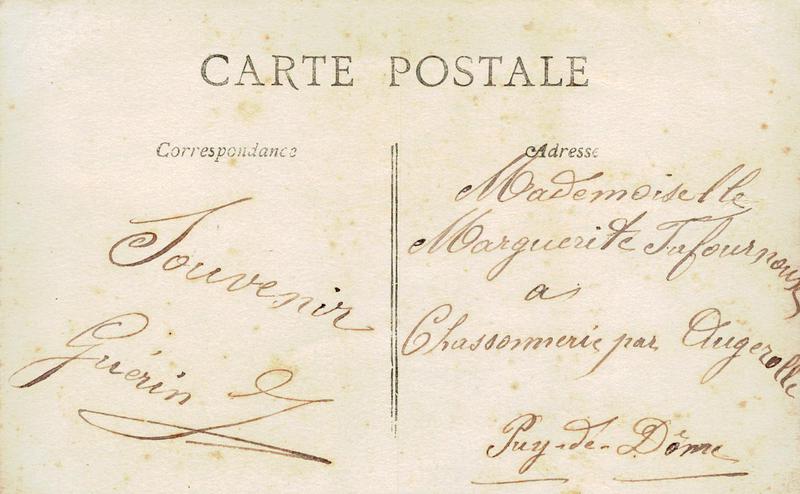 CARTE POSTALE
Correspondance
Souvenir
Guérin
Adresse
Mademoiselle
Marguerite
a
Chassonnerie par Augerolle
Puy-de-Dôme